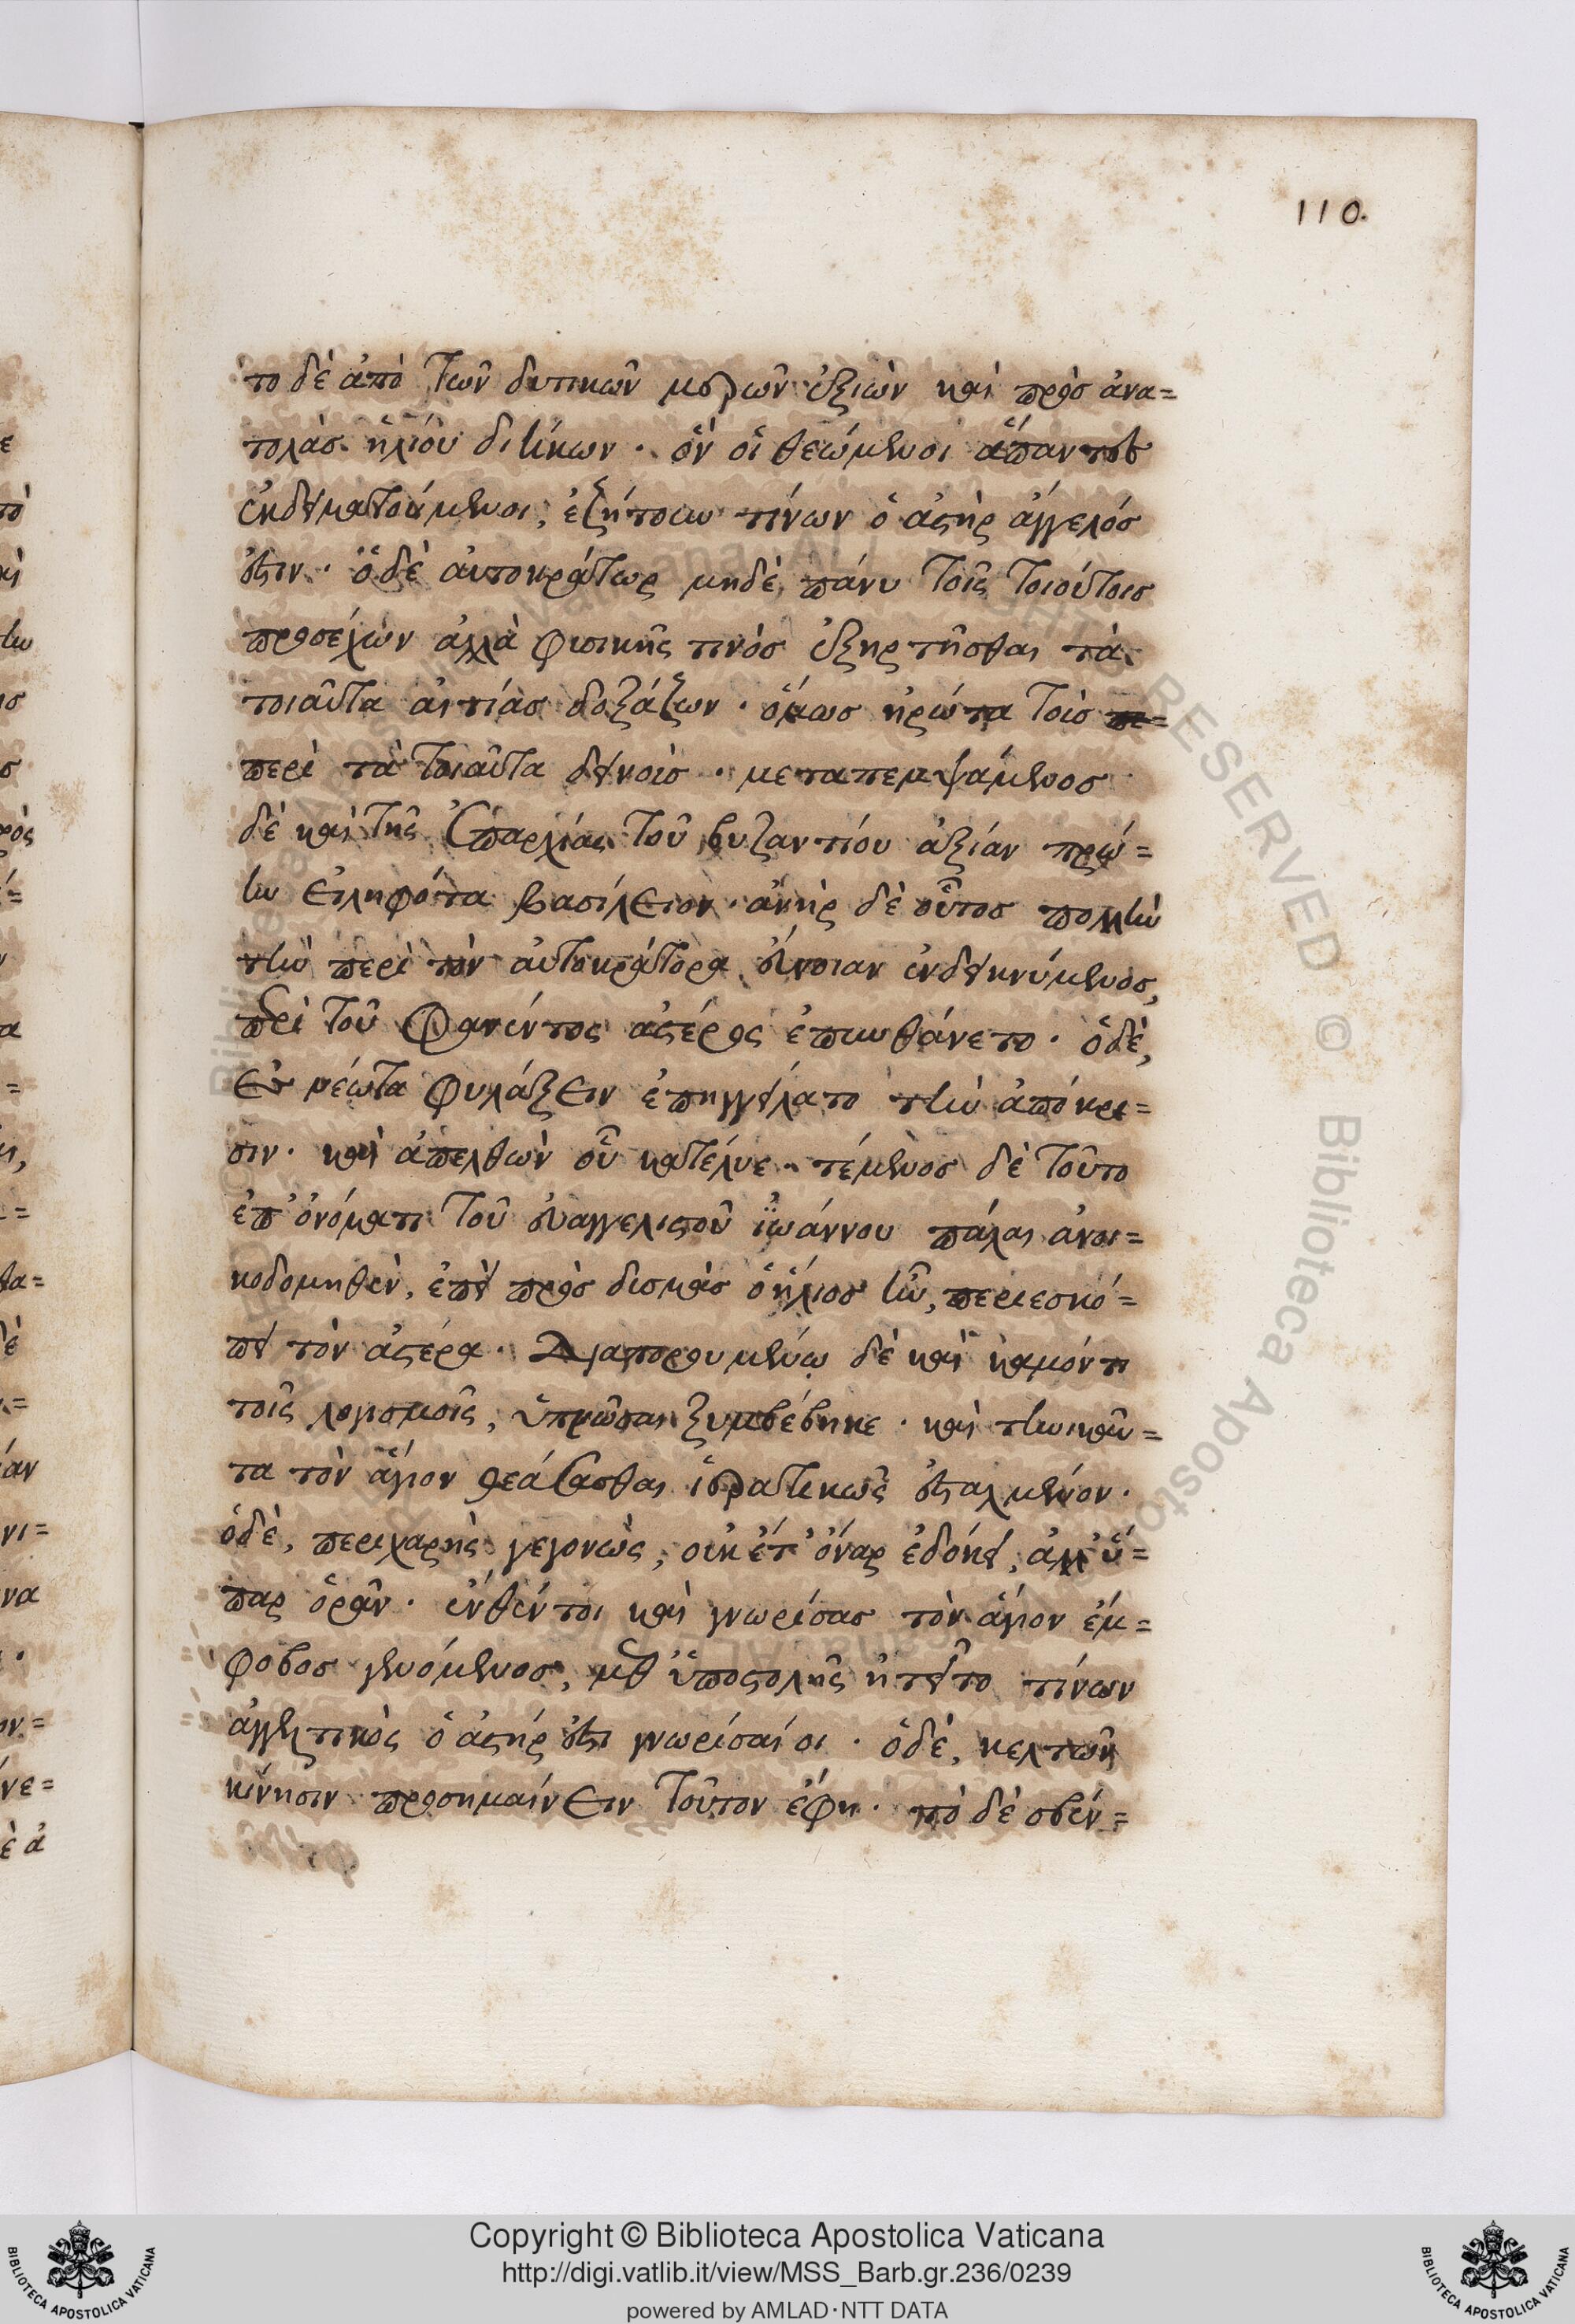 110.
το δὲ ἀπὸ τῶν δυτικῶν μερῶν ἐξιὼν καὶ πρὸς ἀνα=
τολὰς ἡλίου διήκων · ὃν οἱ θεώμενοι ἅπαντες
ἐκδειματούμενοι, ἐζήτουν τίνων ὁ ἀστὴρ ἄγγελός
ἐστιν · ὁ δὲ αὐτοκράτωρ μηδὲ πάνυ τοῖς τοιούτοις
προσέχων ἀλλὰ φυσικῆς τινὸς ἐξηρτῆσθαι τὰ
τοιαῦτα αἰτίας δοξάζων · ὅμως ἠρώτα τοὶς πε=
περὶ τὰ τοιαῦτα δεινοὶς · μεταπεμψάμενος
δὲ καὶ τῆς ἐπαρχίας τοῦ βυζαντίου ἀξίαν πρώ=
ην εἰληφότα βασίλειον · ἀνὴρ δὲ οὗτος πολλὴν
τὴν περὶ τὸν αὐτοκράτορα εὔνοιαν ἐνδεικνύμενος,
περὶ τοῦ φανέντος ἀστέρος ἐπυνθάνετο · ὁ δὲ,
εἰς νέωτα φυλάξειν ἐπηγγείλατο τὴν ἀπόκρι=
σιν · καὶ ἀπελθὼν οὗ κατέλυε · τέμενος δὲ τοῦτο
ἐπ' ὀνόματι τοῦ εὐαγγελιστοῦ ἰωάννου πάλαι ἀνοι=
κοδομηθὲν, ἐπεὶ πρὸς δυσμὰς ὁ ἥλιος ἦν, περιεσκό=
πει τὸν ἀστέρα · Διαπορουμένῳ δὲ καὶ καμόντι
τοῖς λογισμοῖς, ὑπνῶσαι ξυμβέβηκε · καὶ τηνικαῦ=
τα τὸν ἅγιον θεάσασθαι ἱερατικῶς ἐσταλμένον ·
ὁ δὲ, περιχαρὴς γεγονὼς, οὐκέτ' ὄναρ ἐδόκει, ἀλλ' ὕ=
παρ ὁρᾶν · ἐνθέντοι καὶ γνωρίσας τὸν ἅγιον ἔμ=
φοβος γενόμενος, μεθ' ὑποστολῆς ᾐτεῖτο τίνων
ἀγγελτικὸς ὁ ἀστήρ ἐστι γνωρίσαί οι · ὁ δὲ, κελτῶν
κίνησιν προσημαίνειν τοῦτον ἔφη · τὸ δὲ σβέν=
Copyright © Biblioteca Apostolica Vaticana
http://digi.vatlib.it/view/MSS_Barb.gr.236/0239
powered by AMLAD·NTT DATA
BIBLIOTECA APOSTOLICA VATICANA
BIBLIOTECA APOSTOLICA VATICANA